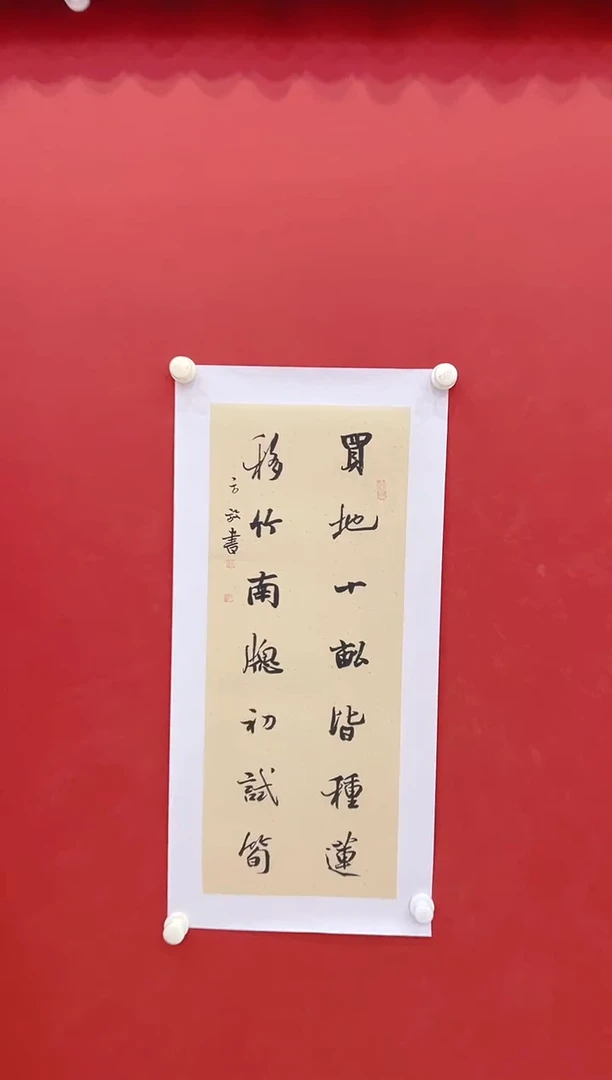 買地十畝皆種蓮
移竹南牕初試筍
方 書